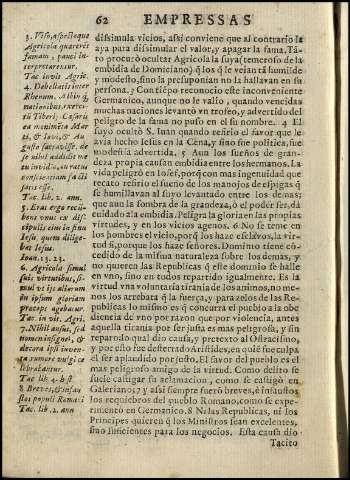 62 EMPRESSAS
3. Viso, aspectoque
Agricola quærerēt
famam, pauci in-
terpretarentur.
Tac in vit. Agric.
4. Debellatis inter
Rhenum, Albin q̃;
nationibus, exerci-
tū Tiberij Cæsaris
ea monimēta Mar
ti, & Iovi, & Au-
gusto sacravisse. de
se nihil addidit me
tu invidiæ, an ratus
conscientiam facti
satis esse.
Tac. lib. 2. ann.
5. Erat ergo recū-
bens unus ex disc-
cipulis eius in sinu
Iesu, quem dilige-
bat Iesus.
Ioan. 13. 23.
6. Agricola simul
suis virtutibus, si-
mul vitijs aliorum
in ipsam gloriam
præceps agebatur.
Tac. in vit. Agri.
7. Nihil ausus, sed
nomen insignes, &
altera ipsi inven-
ta rumore vulgi ce
lebrabantur.
Tac lib. 4. hist.
8 Breves, & infau
stos populi Romani
Tac. lib. 2. ann
dissimula vicios, assi conviene que al contrario la
aya para dissimular el valor, y apagar la fama. Tā-
to procurò ocultar Agricola la suya (temeroso de la
embidia de Domiciano) q̃ los q̃ le veian tā humilde
y modesto, sino la presuponian no la hallavan en su
persona. 3 Con tiēpo reconocio este inconveniente
Germanico, aunque no le valio, quando vencidas
muchas naciones levantò vn trofeo, y advertido del
peligro de la fama no puso en el su nombre. 4 El
suyo ocultò S. Iuan quando refirio el favor que le
avia hecho Iesus en la Cena, y sino fue politica, fue
modestia advertida. 5 Aun los sueños de gran-
deza propia causan embidia entre los hermanos. La
vida peligrò en Iosef, porq̃ con mas ingenuidad que
recato refirio el sueño de los manojos de espigas q̃
se humillavan al suyo levantado entre los demas;
que aun la sombra de la grandeza, ò el poder ser, dà
cuidado a la embidia. Peligra la gloria en las propias
virtudes, y en los vicios agenos. 6. No se teme en
los hombres el vicio, porq̃ los haze esclavos, la vir-
tud si, porque los haze señores. Dominio tiene cō-
cedido de la misma naturaleza sobre los demas, y
no quieren las Republicas q̃ este dominio se halle
en vno, sino en todos repartido igualmente. Es la
virtud vna voluntaria tirania de los animos, no me-
nos los arrebata q̃ la fuerça, y para zelos de las Re-
publicas lo mismo es q̃ concurra el pueblo a la obe-
diencia de vno por razon que por violencia, antes
aquella tirania por ser justa es mas peligrosa, y sin
reparo do qual dio causa, y pretexto al Ostracismo,
y por esto fue desterrado Aristides, en quiē fue culpa
el ser aplaudido por justo. El favor del pueblo es el
mas peligroso amigo de la virtud. Como delito se
suele castigar su aclamacion, como se castigò en
Galeriano; 7 y assi siempre fuerō breves, è infaustos
los requiebros del pueblo Romano, como se expe-
rimentò en Germanico. 8 Ni las Republicas, ni los
Principes quieren q̃ los Ministros sean excelentes,
sino suficientes para los negocios. Esta causa dio
Tacito